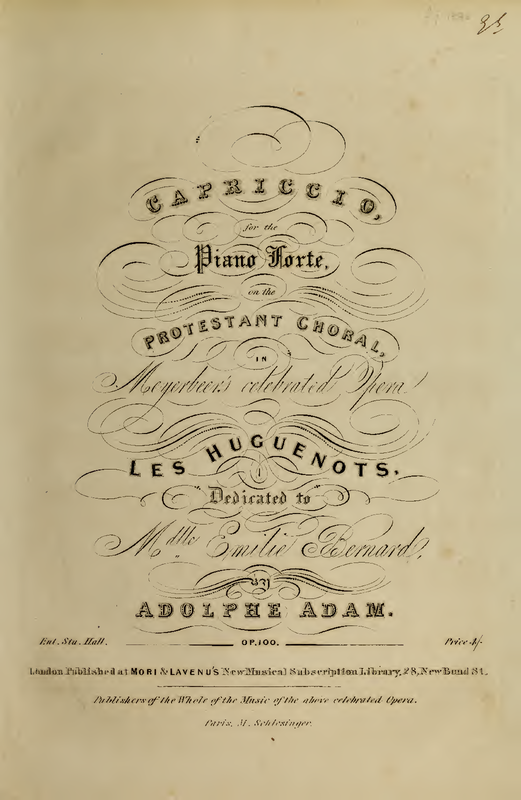 CAPRICCIO,
for the
Piano Forte,
on the
PROTESTANT CHORAL,
IN
Meyerbeer's celebrated Opera
LES HUGUENOTS.
Dedicated to
Mdlle Emilie Bernard.
BY
ADOLPHE ADAM.
Ent. Sta. Hall. OP. 100. Price 4/-
London Published at MORI & LAVENU'S New Musical Subscription Library, 28, New Bond St.
Publishers of the Whole of the Music of the above celebrated Opera.
Paris, M. Schlesinger.